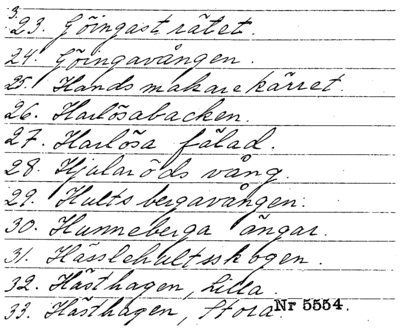 3.
23. Göingasträtet.
24. Göingavången.
25. Handsmakarekärret.
26. Harlösabacken.
27. Harlösa fälad.
28. Hjularöds vång.
29. Hultsbergavången.
30. Hunneberga ängar.
31. Hässlehultsskogen.
32. Hästhagen, Lilla.
33. Hästhagen, Stora. Nr 5554.